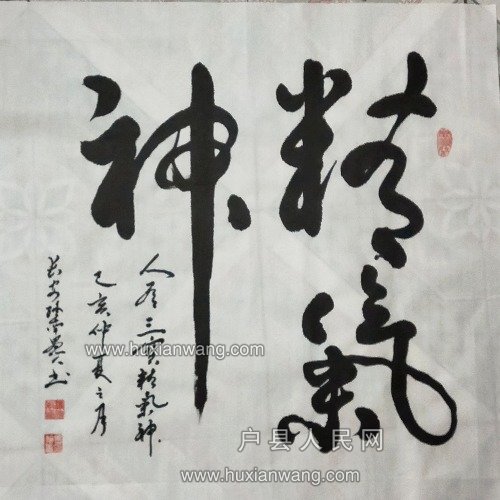 精氣
神
人有三寶精氣神
乙亥仲夏之月
www.huxianwang.com
户县人民网
www.huxianwang.com